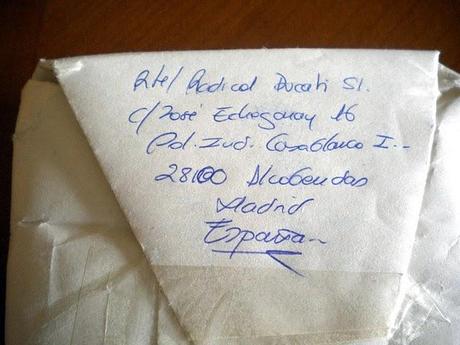 Rte/ Radical Ducati Sl.
c/ José Echegaray 16
Pol. Ind. Casablanca I.-
28100 Alcobendas
Madrid
España